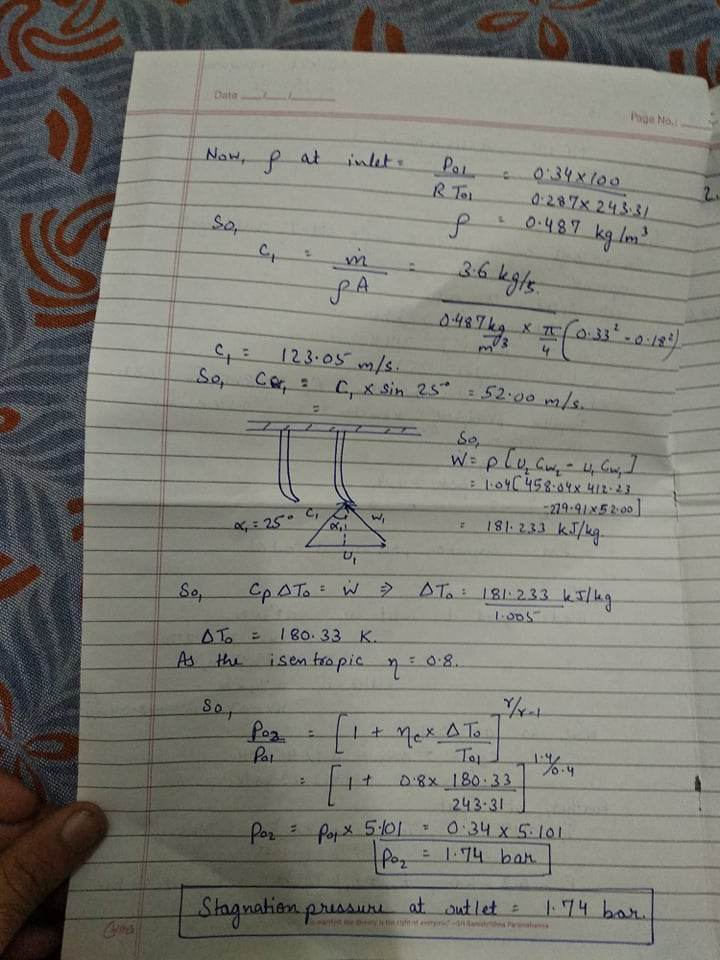 Date ___/___/______
Page No.: ____
Now, ρ at inlet = P01 / R T01 = 0.34×100 / 0.287×243.31
2.
ρ = 0.487 kg/m³
So,
C₁ = ṁ / ρA = 3.6 kg/s. / 0.487 kg/m³ × π/4 (0.33² - 0.18²)
C₁ = 123.05 m/s.
So, Cω₁ = C₁ × sin 25° = 52.00 m/s.
=
So,
Ẇ = ρ[U₂ Cw₂ - U₁ Cw₁]
= 1.04[458.04×412.23
-279.91×52.00]
= 181.233 kJ/kg.
α₁ = 25° C₁ α₁ W₁
U₁
So, Cp ΔT₀ = Ẇ ⇒ ΔT₀ = 181.233 kJ/kg / 1.005
ΔT₀ = 180.33 K.
As the isentropic η = 0.8.
So,
P03 / P01 = [1 + ηc × ΔT₀ / T01]^γ/γ-1
= [1 + 0.8× 180.33 / 243.31]^1.4/0.4
P02 = P01 × 5.101 = 0.34 × 5.101
P02 = 1.74 bar
Stagnation pressure at outlet = 1.74 bar.
is manifest the divinity is the right of everyone" -Sri Ramakrishna Paramahamsa